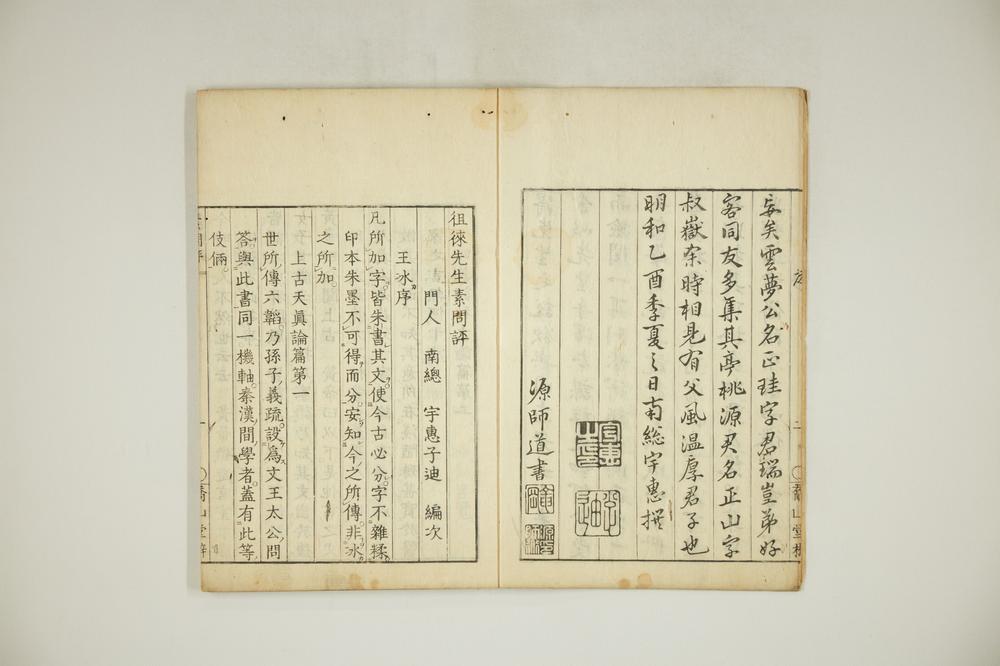 妄矣雲夢公名正珪字君瑞豈弟好
客同友多集其亭桃源君名正山字
叔嶽余時相見有父風温厚君子也
明和乙酉季夏之日南総宇惠撰
源師道書
徂徠先生素問評
門人 南總 宇惠子迪 編次
王冰序
凡所加字皆朱書其文使今古必分字不雜糅
印本朱墨不可得而分安知今之所傳非冰
之所加
上古天眞論篇第一
世所傳六韜乃孫子義疏設爲文王太公問
答與此書同一機軸秦漢間學者蓋有此等
伎倆